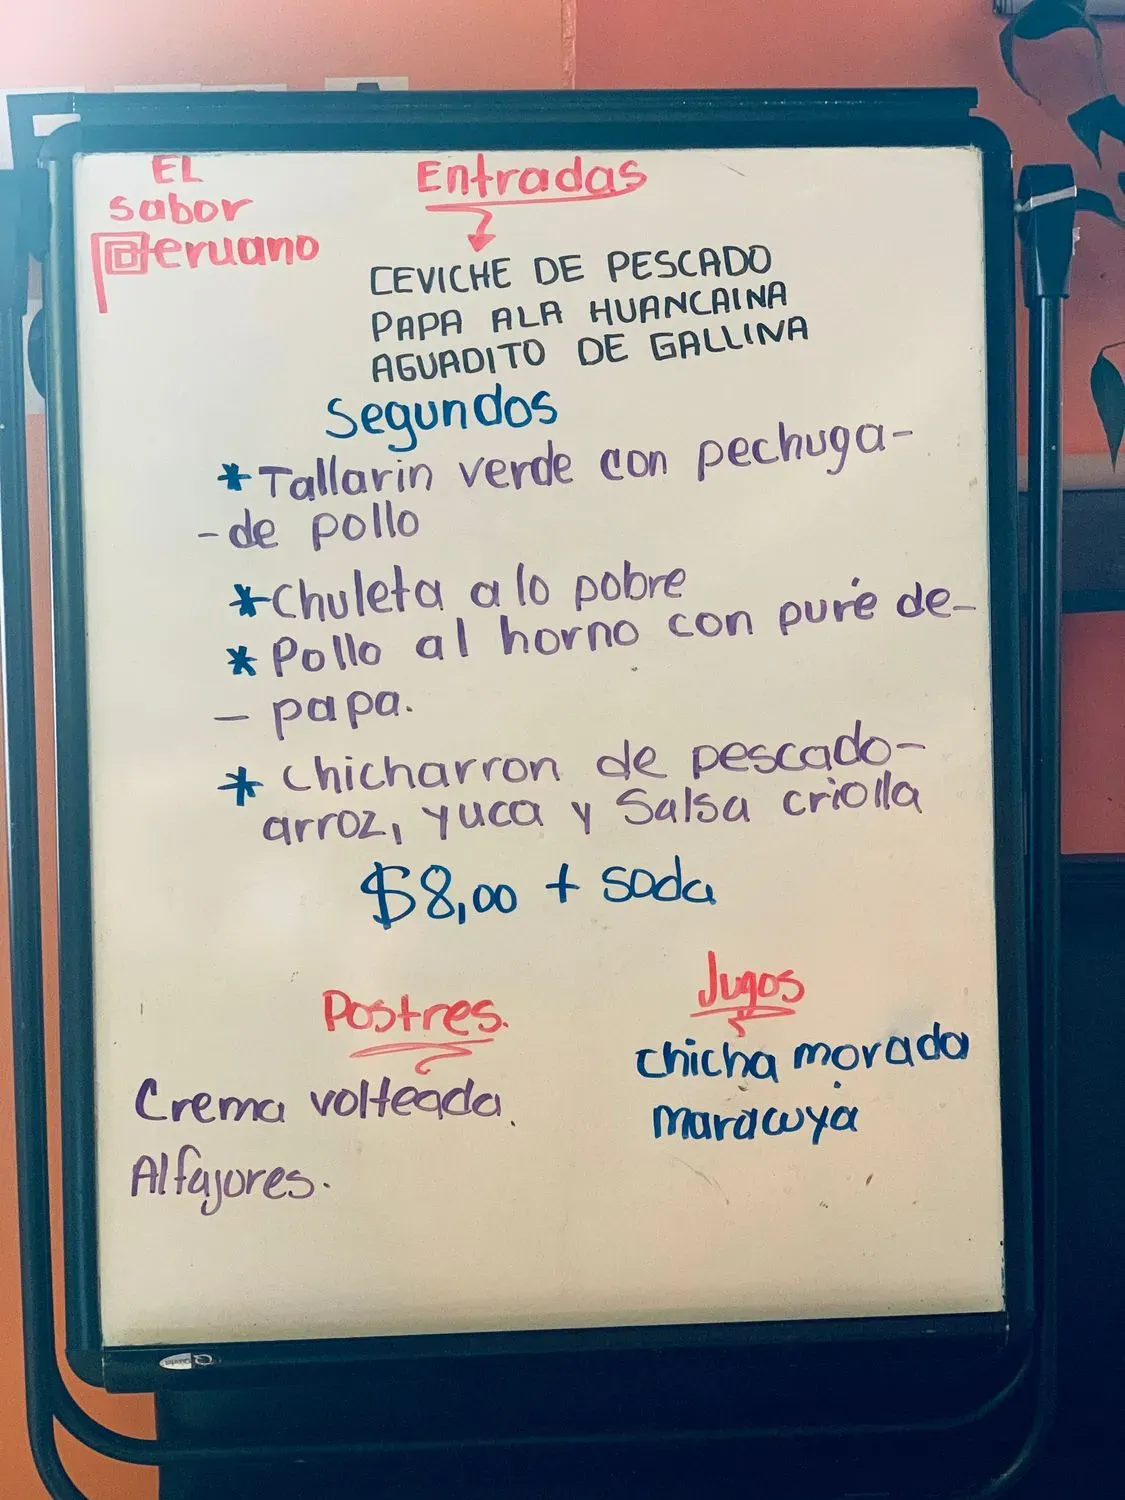 EL
sabor
Peruano
Entradas
CEVICHE DE PESCADO
PAPA ALA HUANCAINA
AGUADITO DE GALLINA
Segundos
*Tallarin verde con pechuga-
-de pollo
*Chuleta a lo pobre
*Pollo al horno con puré de-
- papa.
* chicharron de pescado-
arroz, yuca y Salsa criolla
$8,00 + soda
Postres.
Crema volteada.
Alfajores.
Jugos
chicha morada
maracuya